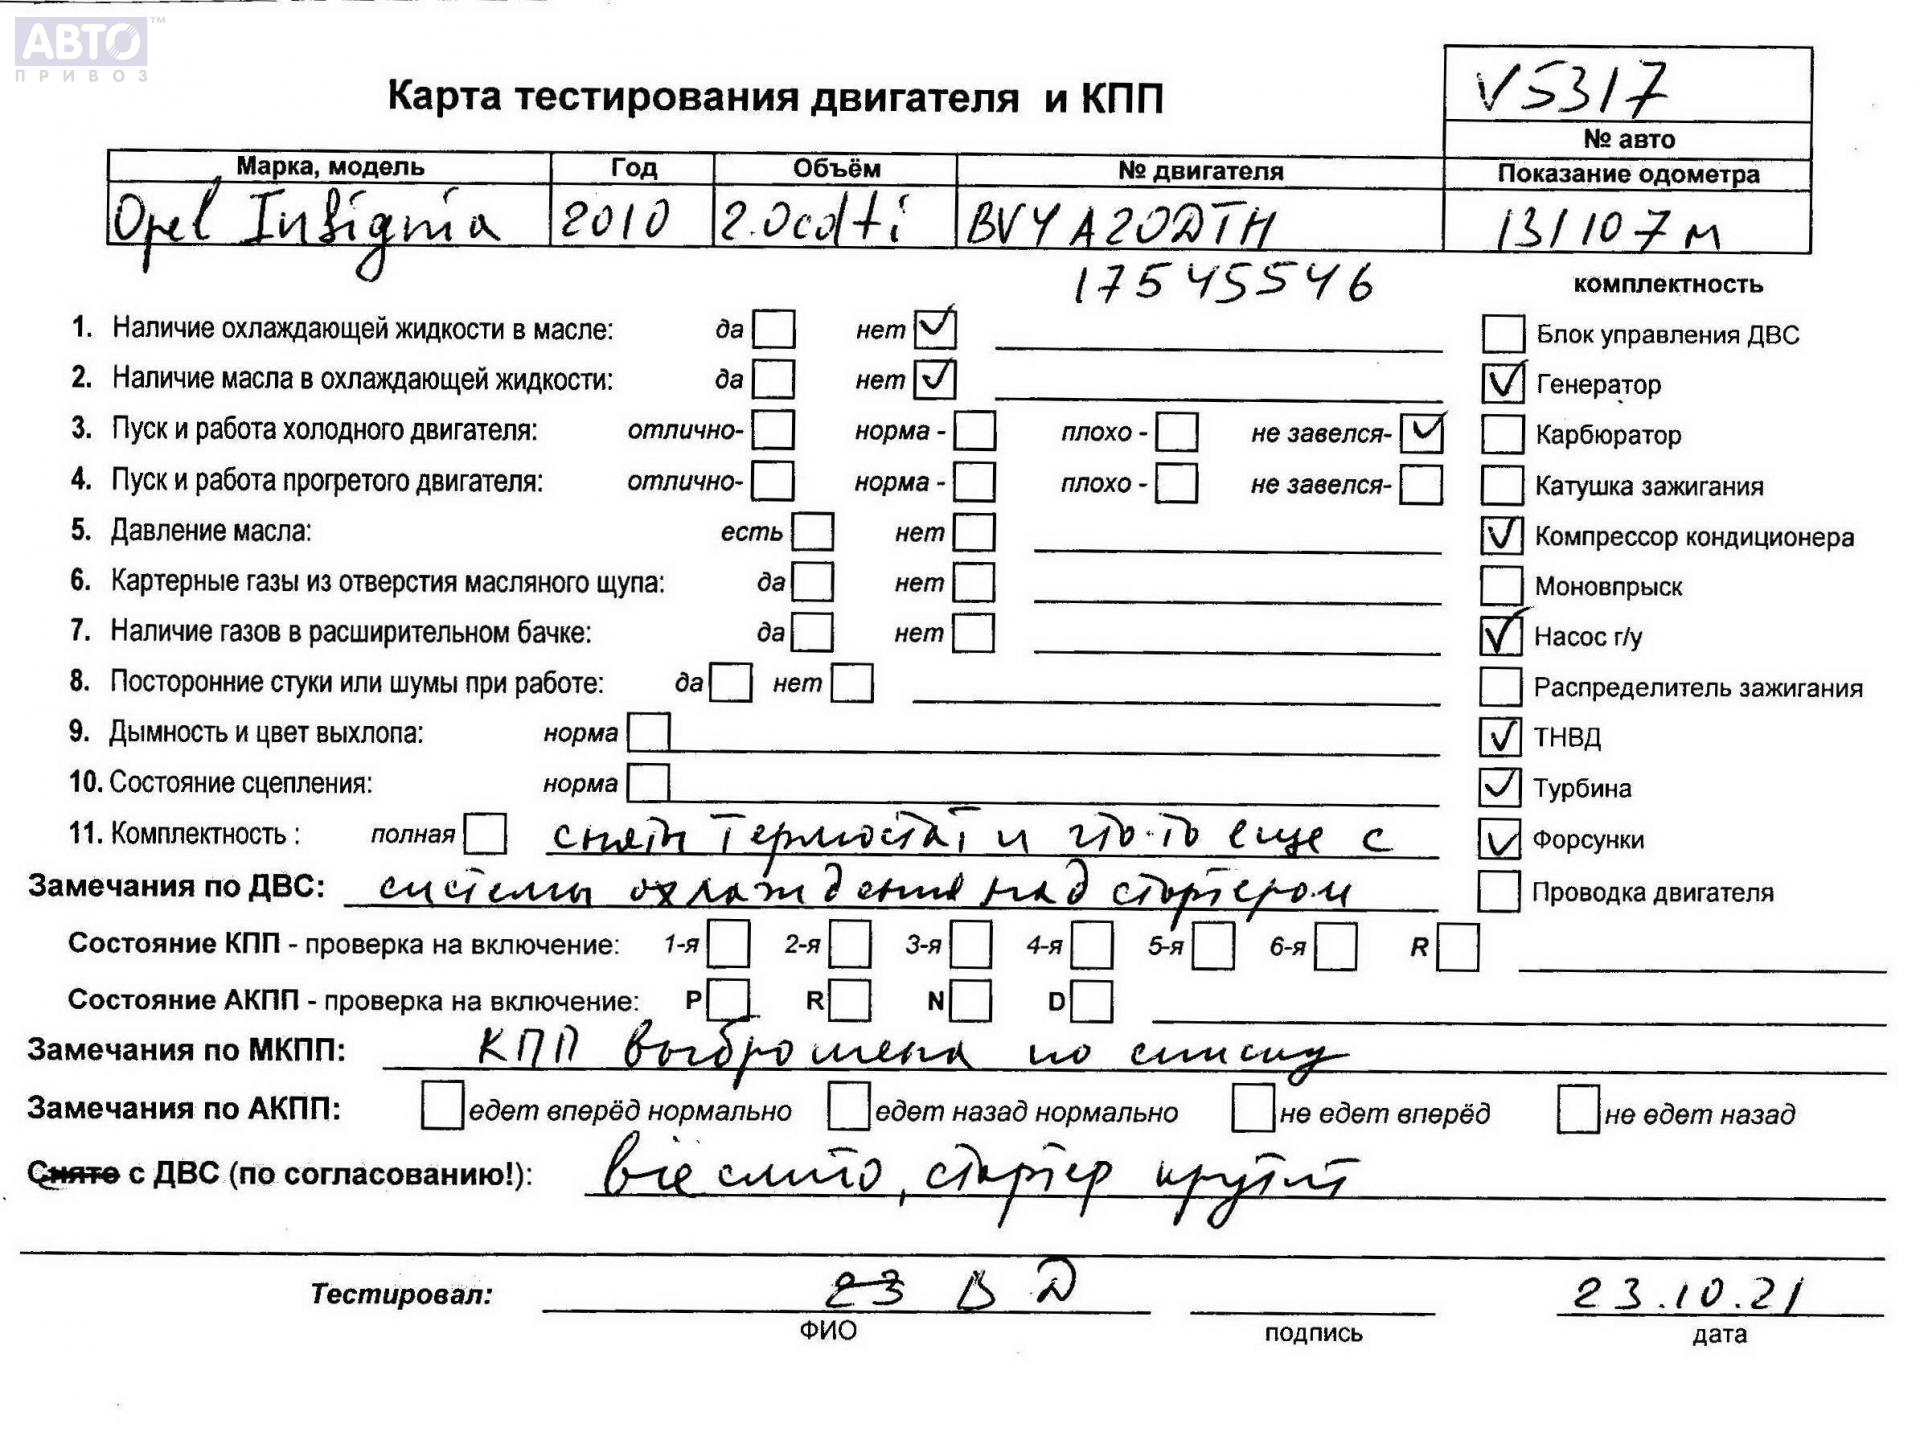 АВТО™
ПРИВОЗ
V5317
Карта тестирования двигателя и КПП
№ авто
Марка, модель Год Объём № двигателя Показание одометра
Opel Insignia 2010 2.0cdti BVY A20DTH 131107м
17545546
комплектность
1. Наличие охлаждающей жидкости в масле: да нет Блок управления ДВС
2. Наличие масла в охлаждающей жидкости: да нет Генератор
3. Пуск и работа холодного двигателя: отлично- норма - плохо - не завелся- Карбюратор
4. Пуск и работа прогретого двигателя: отлично- норма - плохо - не завелся- Катушка зажигания
5. Давление масла: есть нет Компрессор кондиционера
6. Картерные газы из отверстия масляного щупа: да нет Моновпрыск
7. Наличие газов в расширительном бачке: да нет Насос г/у
8. Посторонние стуки или шумы при работе: да нет Распределитель зажигания
9. Дымность и цвет выхлопа: норма ТНВД
10. Состояние сцепления: норма Турбина
11. Комплектность : полная снят термостат и что-то еще с Форсунки
Замечания по ДВС: системы охлаждения над стартером Проводка двигателя
Состояние КПП - проверка на включение: 1-я 2-я 3-я 4-я 5-я 6-я R
Состояние АКПП - проверка на включение: P R N D
Замечания по МКПП: КПП выброшена по списку
Замечания по АКПП: едет вперёд нормально едет назад нормально не едет вперёд не едет назад
Снято с ДВС (по согласованию!): всё слито, стартер крутит
Тестировал: 23 В Д 23.10.21
ФИО подпись дата